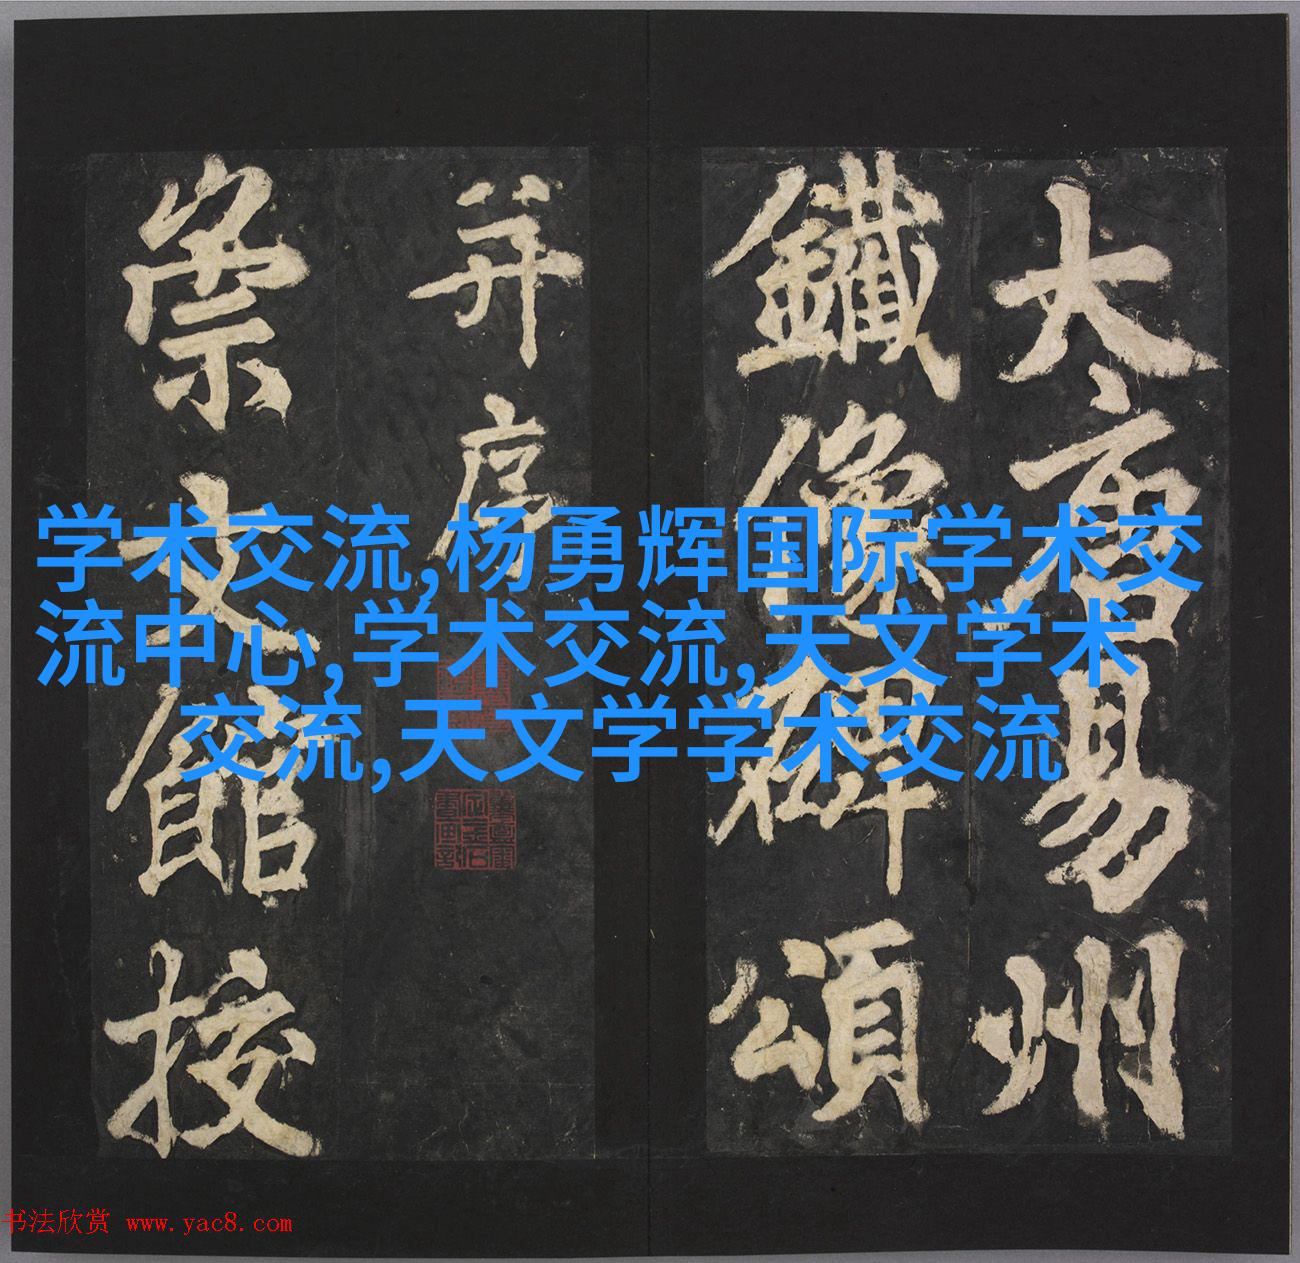 大唐易州
鐵像碑頌
并序
崇文館校
学术交流,杨勇辉国际学术交
流中心,学术交流,天文学术
交流,天文学学术交流
书法欣赏 www.yac8.com